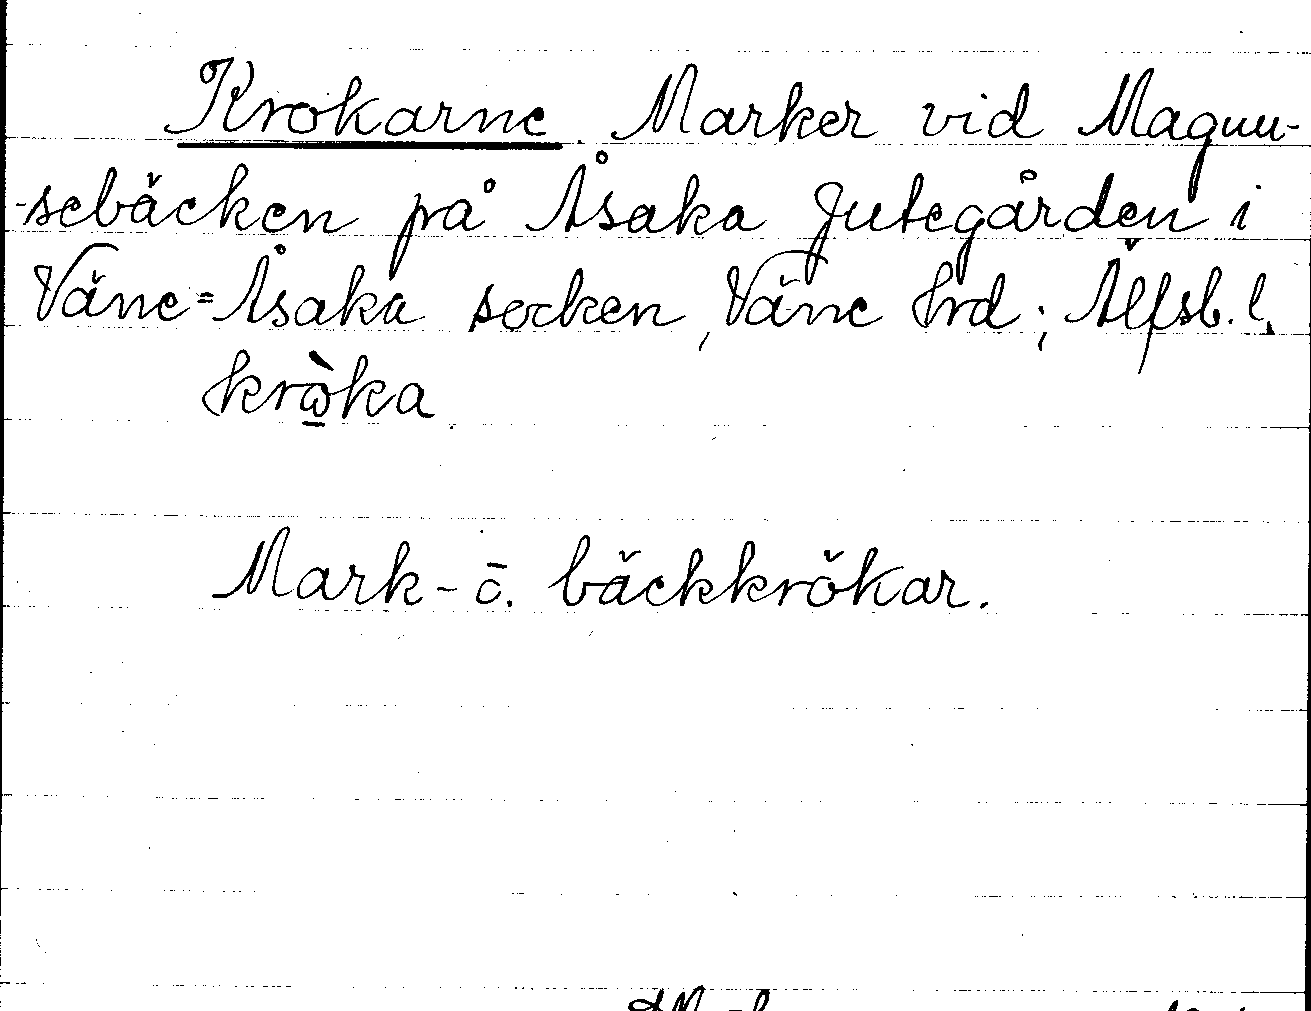 Krokarne. Marker vid Magnu-
-sebäcken på Åsaka Jutegården i
Väne=Åsaka socken, Väne hrd; Älfsb. l.
krὼ̱ka
Mark- o. bäckkrökar.